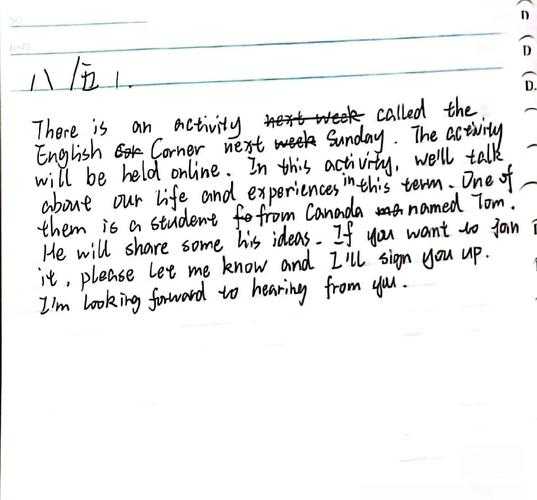 八/五 1.
There is an activity next week called the
English Cor Corner next week Sunday. The activity
will be held online. In this activity, we'll talk
about our life and experiences in this term. One of
them is a student fo from Canada named Tom.
He will share some his ideas. If you want to join
it, please let me know and I'll sign you up.
I'm looking forward to hearing from you.
D
D
D.